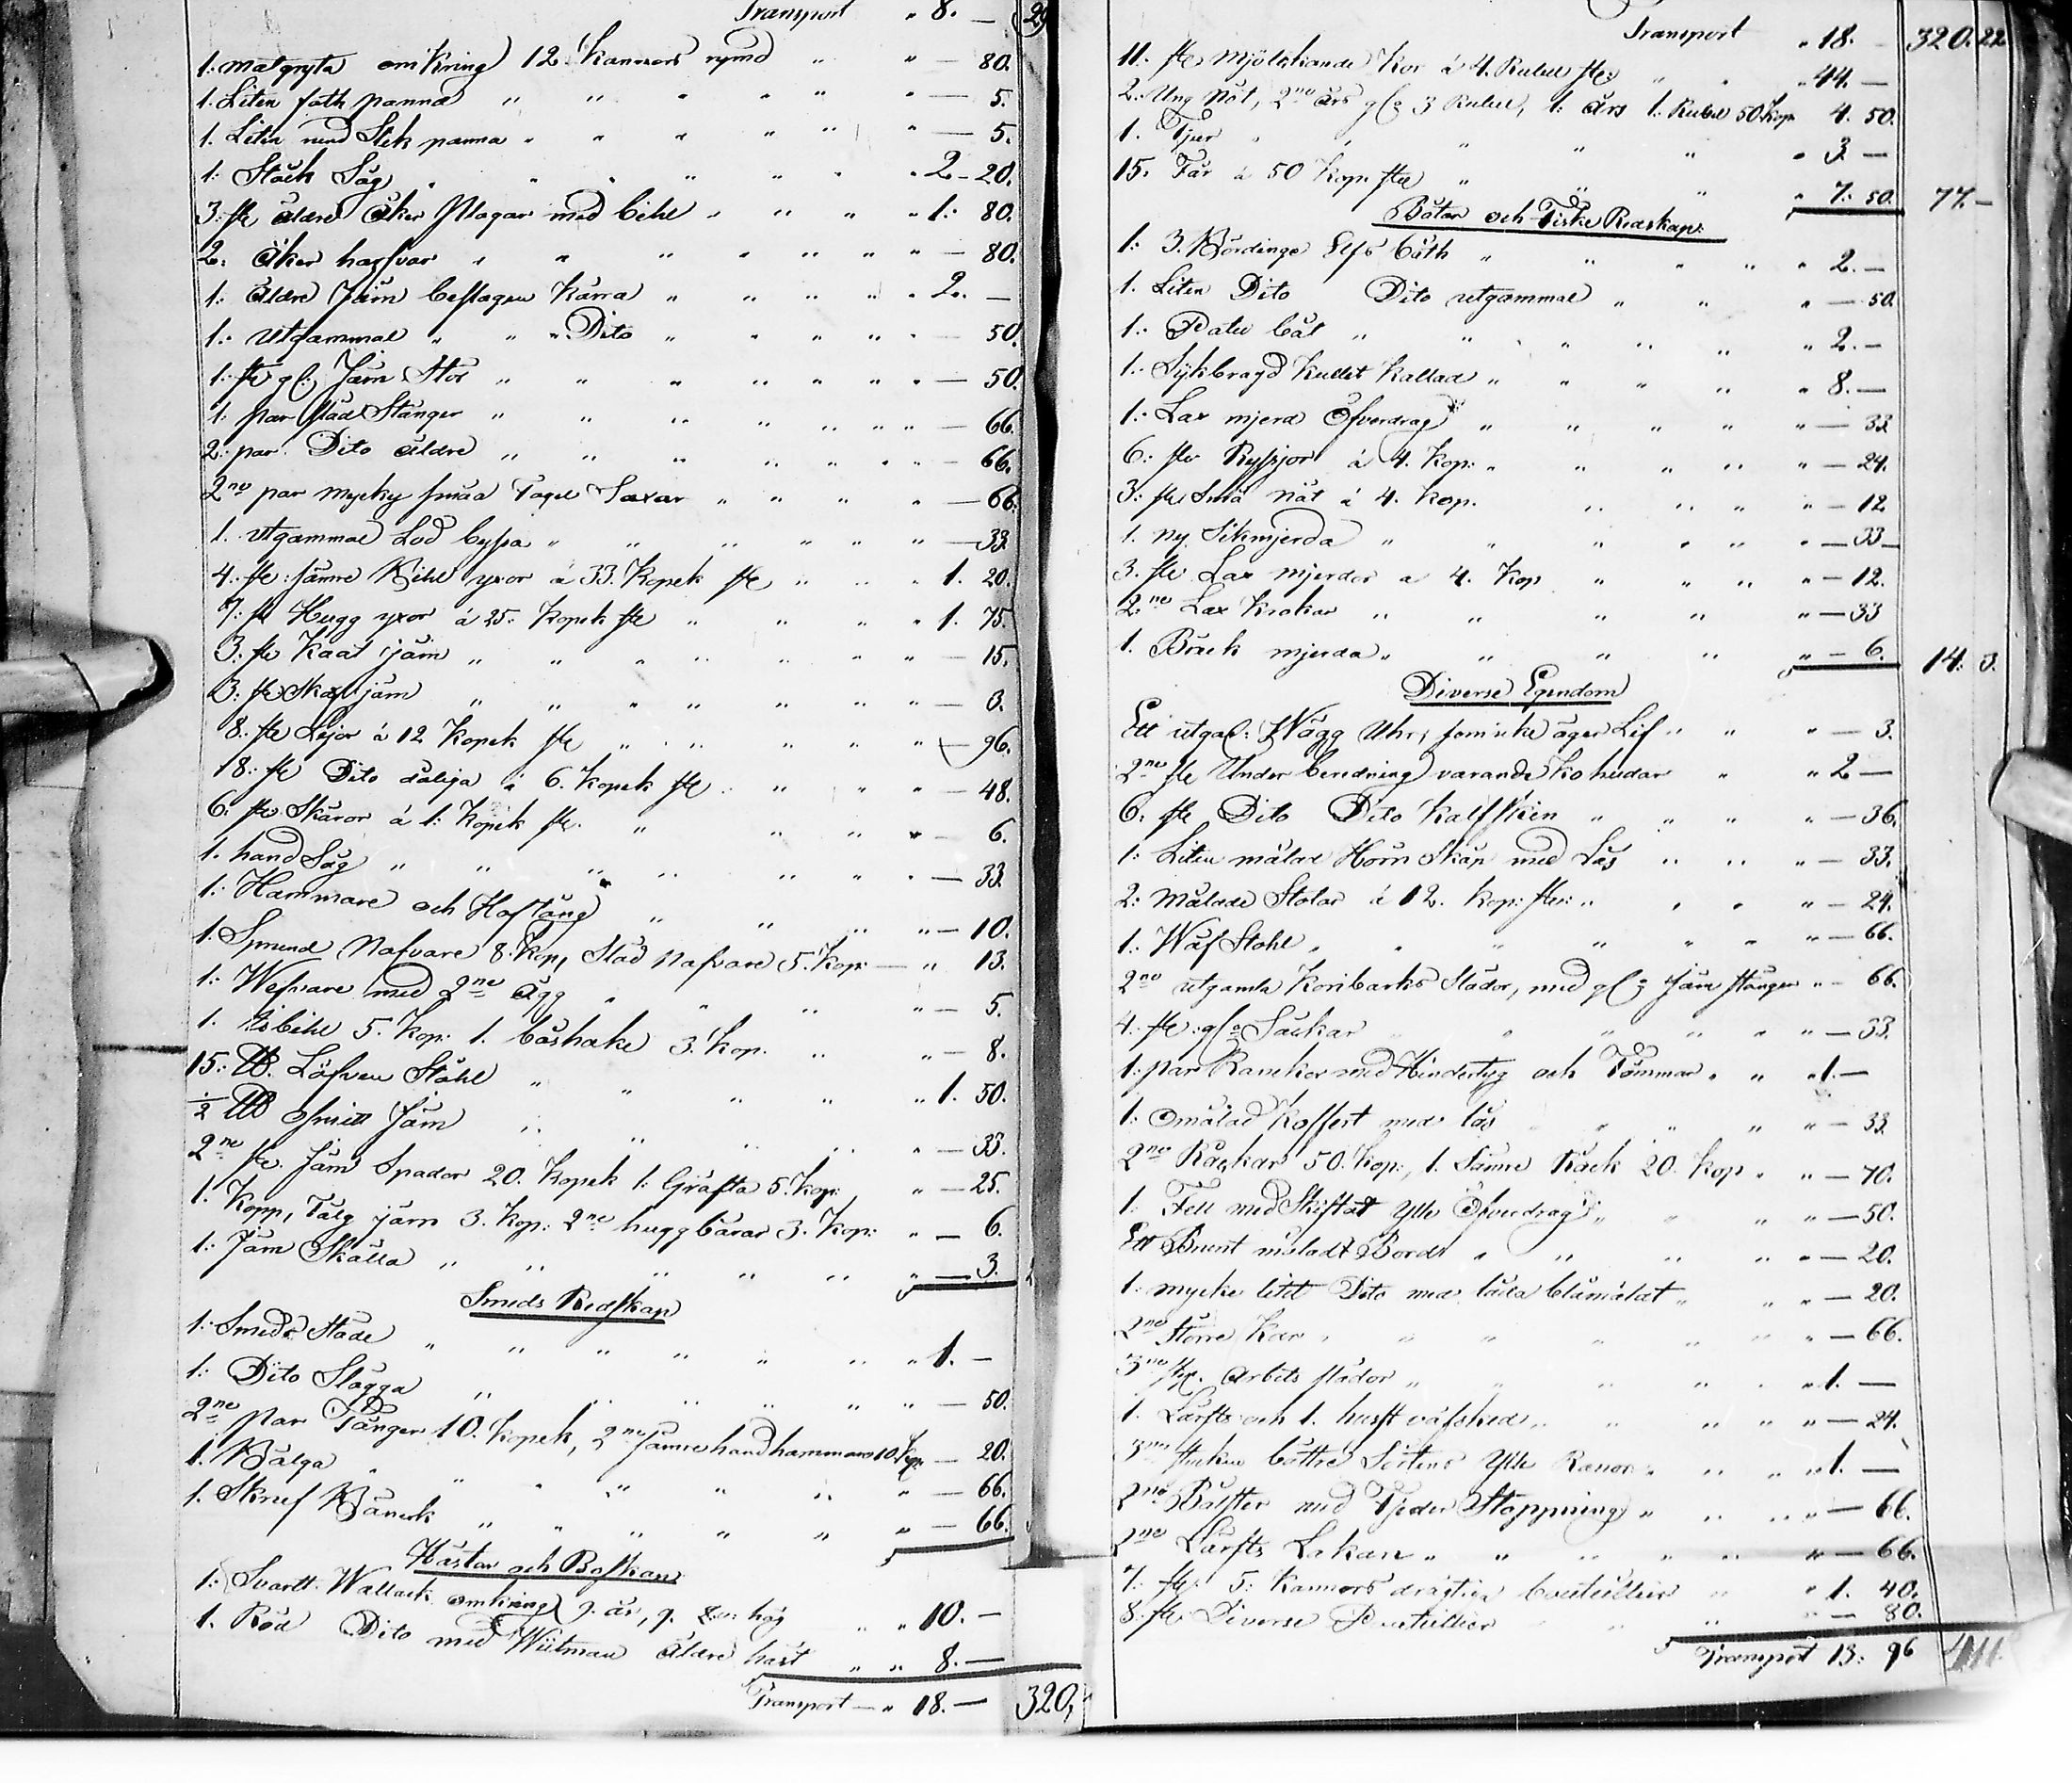 Transport " 8. — 29
1: matgryta omkring 12. Kannors rymd " " — 80.
1. Liten fath panna " " " " " " — 5.
1. Liten rund Stek panna " " " " " " — 5.
1: Stock Såg " " " " " " 2 - 20.
3: ste äldre åker Plogar med bihl " " " " 1: 80.
2: åker harfvar " " " " " " " — 80.
1: äldre Järn beslagen Kärra " " " " " 2. —
1: utgammal " " " Dito " " " " " — 50.
1: st gl: Järn Stör " " " " " " " — 50.
1: par Stänger " " " " " " " — 66.
2: par Dito äldre " " " " " " " — 66.
2ne par mycky små Tagel Saxar " " " " — 66.
1. utgammal Lod byssa " " " " " " — 33.
4: ste: sämre Bihl yxor á 33. Kopek ste " " " 1. 20.
7: st Hugg yxor á 25. Kopek ste " " " " 1. 75.
3: ste Kaal järn " " " " " " " — 15.
3: ste Skaf järn " " " " " " " — 0.
8. ste Lijor á 12 Kopek ste " " " " " — 96.
18: ste Dito dåliga á 6. Kopek ste " " " " — 48.
6. ste Skäror á 1: Kopek ste. " " " " — 6.
1. hand Såg " " " " " " " — 33.
1: Hammare och Hoftång " " " " — 10.
1. Spründ Nafvare 8. Kop, Städ Nafvare 5. Kop: — " 13.
1: Wefvare med 2ne ägg " " " " — 5.
1. Isbihl 5. Kop: 1. båshake 3. Kop. " " — 8.
15: ℔. Löfven Ståhl " " " " " 1. 50.
½ L℔ Smitt Järn " " " " " — 33.
2ne ste. Järn Spador 20. Kopek 1. Gräfta 5. Kop: " — 25.
1. Kopp, Tälg järn 3. Kop: 2ne huggbårar 3. Kop: " — 6.
1: Järn Skälla " " " " " " — 3.
Smeds Redskap
1: Smeds Städe " " " " " " " 1. —
1: Dito Slägga " " " " " " — 50.
2ne par Tänger 10. Kopek, 2ne sämre handhammare 10. Kop: — 20.
1. Bälga " " " " " " — 66.
1. Skruf Bänck " " " " " " — 66.
Hästar och Boskap
1: Svartt Wallack omkring 9. år, 9. qu: hög " " 10. —
1. Röd Dito med Witman äldre häst " " 8. —
Transport — " 18. — 320,
Transport " 18. — 320. 22
11: ste Mjölkande Kor á 4. Rubel ste: " " " 44. —
2. Ung Nöt, 2ne års gl: 3 Rubel, 1: års 1: Rubel 50. Kop 4. 50.
1. Tjur " " " " " " 3. —
15. Får á 50 Kop: ste " " " " 7: 50. 77. —
Båtar och Fiske Redskap:
1: 3. Bördinge Elfs båth " " " " " 2. —
1. Liten Dito Dito utgammal " " " — 50.
1: Patu båt " " " " " " " 2. —
1: Sijkbragd Kullet Kallad " " " " " 8. —
1: Lax mjerd Öfverdrag " " " " " — 33
6: ste Ryssjor á 4. Kop: " " " " " — 24.
3: ste Små Nät á 4. Kop. " " " " — 12
1. ny Sikmjerda " " " " " " — 33 —
3. ste Lax mjerdor a 4. Kop " " " " — 12.
2ne Lax Krokar " " " " " — 33
1. Bräck mjerda " " " " " — 6. 14. 3.
Diverse Egendom
Ett utgal: Wägg Uhr, som icke äger Lif " " " — 3.
2ne ste Under beredning varande Ko hudar " " 2 —
6. ste Dito Dito Kalfskin " " " " — 36.
1: Liten målad Hörn Skåp med Lås " " " — 33.
2: Målade Stolar á 12. Kop: ste: " " " " — 24.
1. Wäf Stohl " " " " " " " — 66.
2ne utgamla Koribarks Slädor, med gl: järn stänger " — 66.
4. ste: gl: Säckar " " " " " " — 33.
1: par Rancker med Hindertyg och Tömmar " " " 1. —
1: Omålad Koffert med lås " " " " — 33.
2ne Räckar 50. Kop:, 1. Sämre Räck 20. Kop " " — 70.
1: Fell med Skiftat Ylle Öfverdrag " " " " — 50.
Ett Brunt måladt Bord " " " " — 20.
1: mycke litet Dito med låda blåmålat " " " — 20.
2ne Större Kar " " " " " " — 66.
3ne st. Arbets slädor " " " " " 1. —
1. Lärfts och 1. husft väfsked " " " " " — 24.
3ne stycken bättre Sortens Ylle Ranor " " " " 1. —
2ne Bålster med Fjeder Stoppning " " " " — 66.
2ne Lärfts Lakan " " " " " — 66.
7. ste 5: Kannors drägtiga bouteiller " " 1. 40.
8. ste Diverse Bouteiller " " — 80.
Transport 13: 96 411.